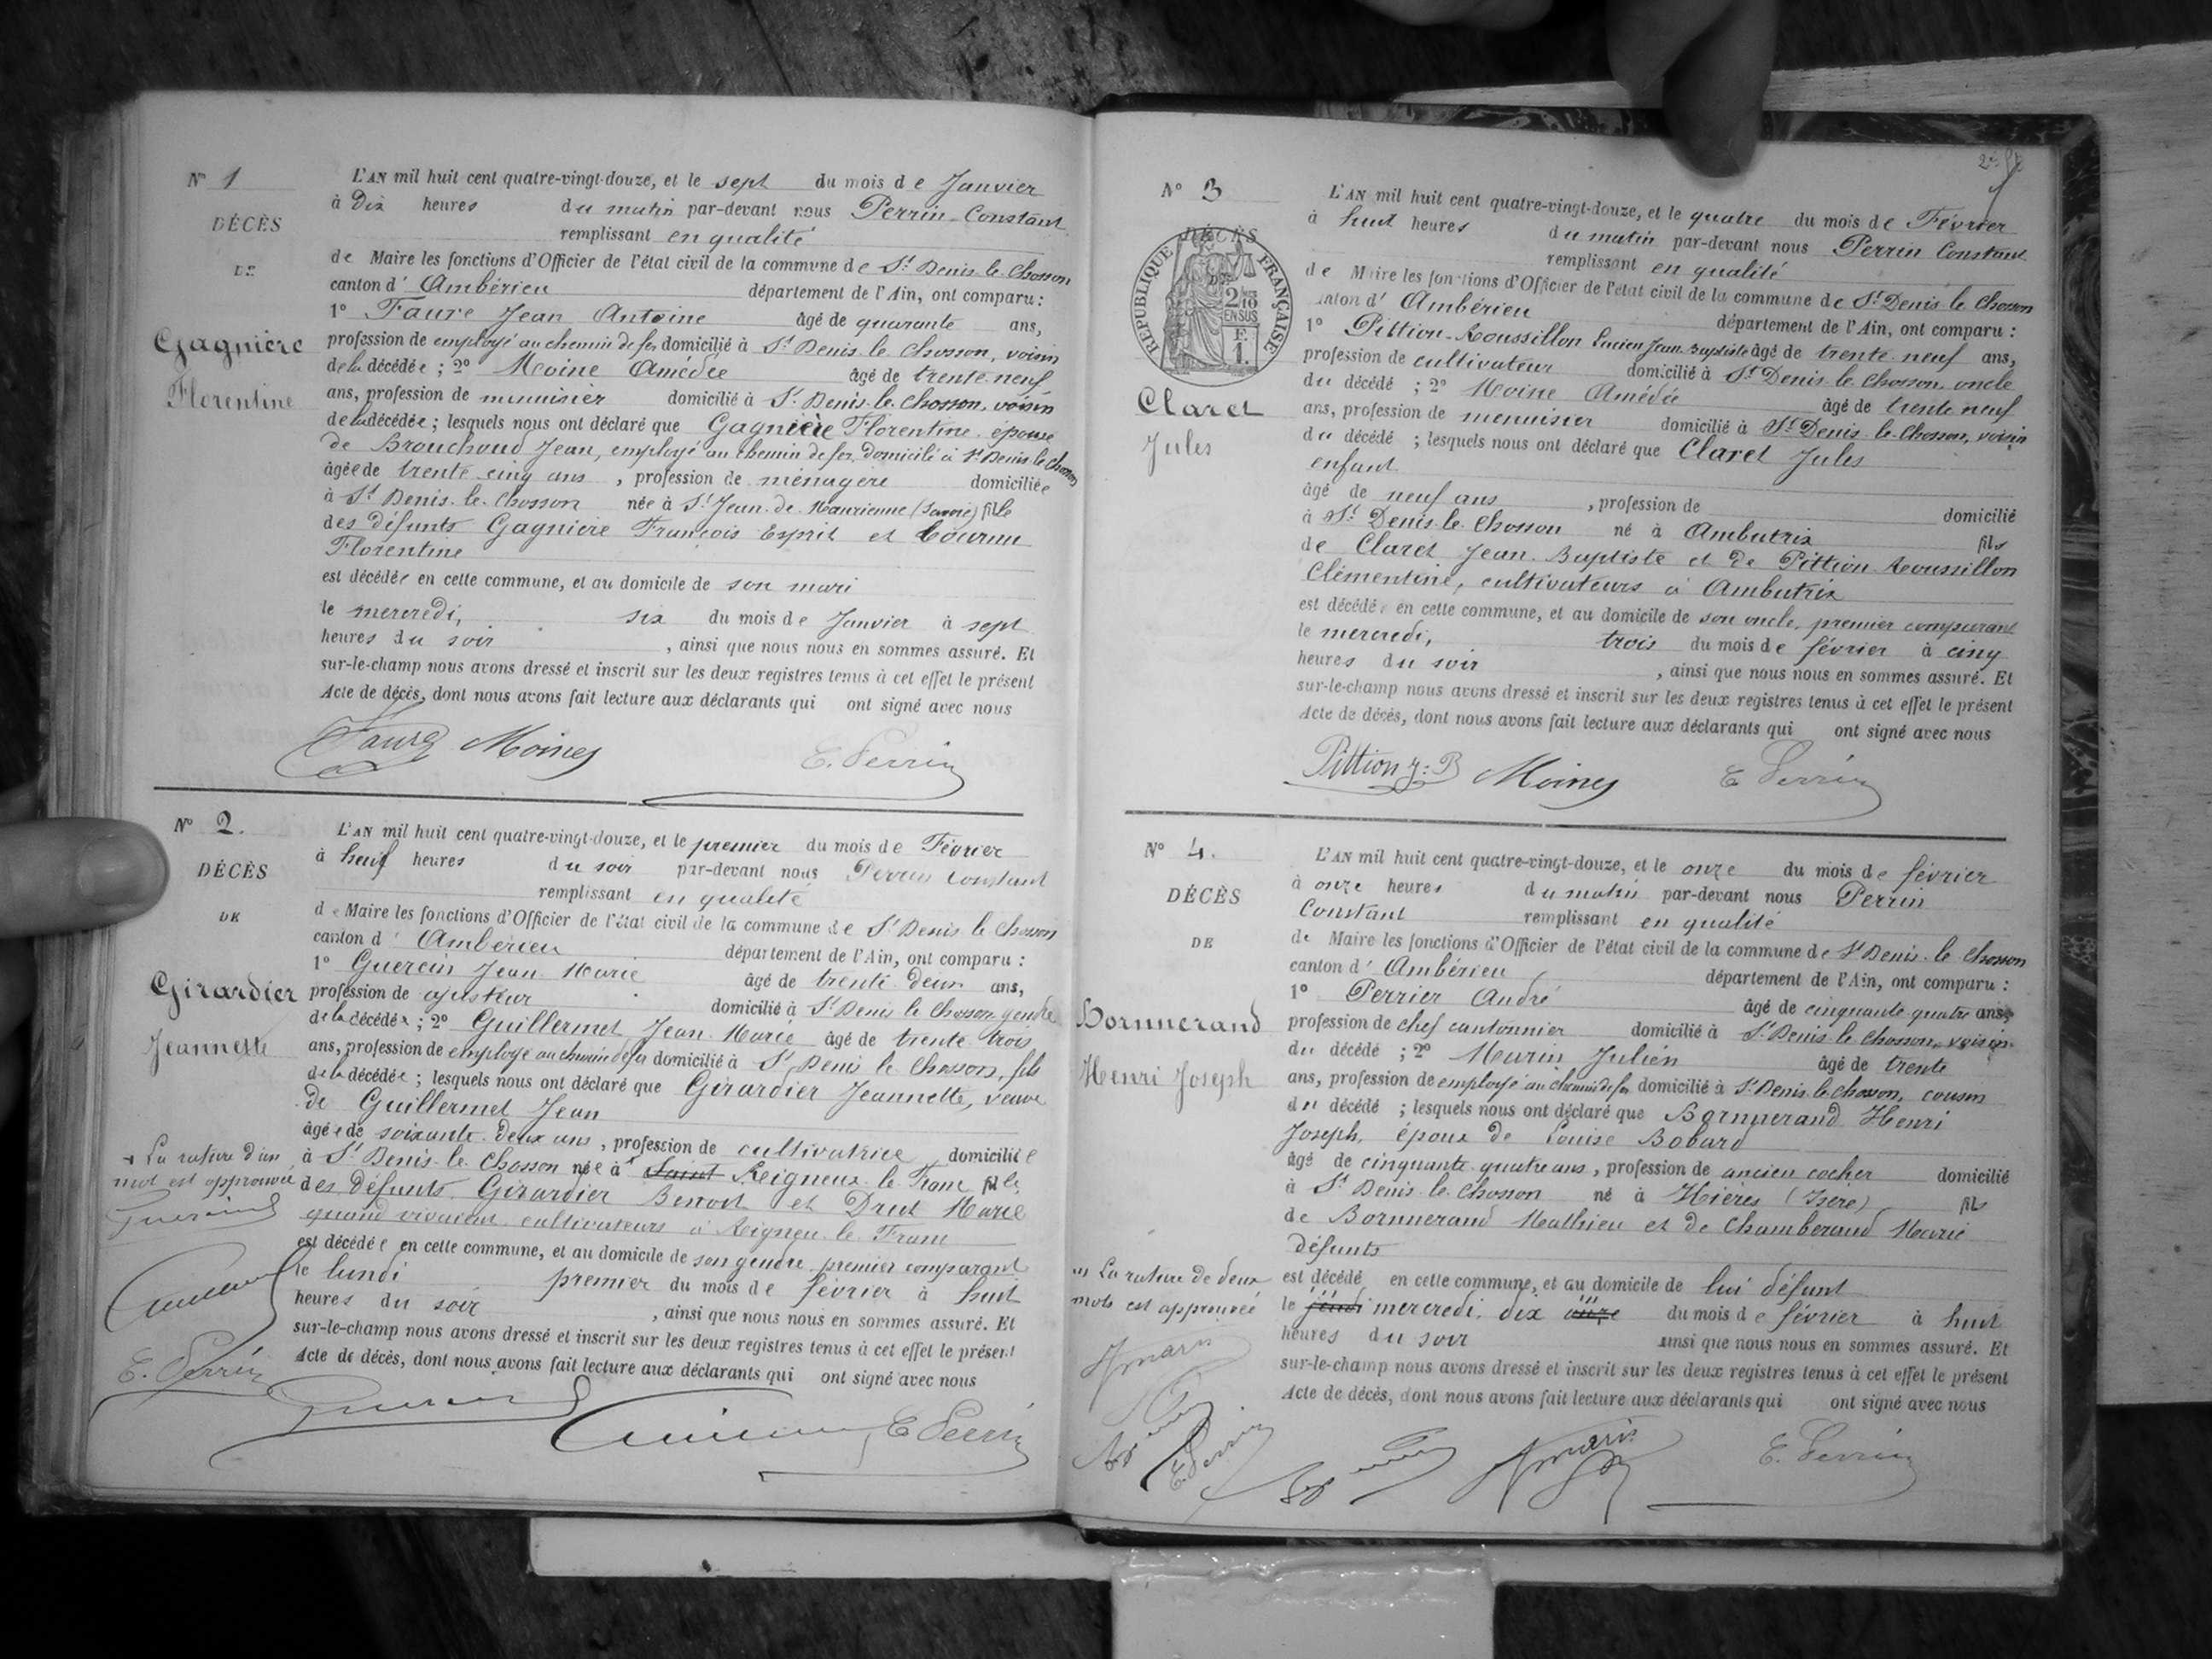 N° 1
DÉCÈS
DE
Gagnière
Florentine
L'AN mil huit cent quatre-vingt-douze, et le sept du mois de Janvier
à Dix heures du matin par-devant nous Perrin Constant
remplissant en qualité
de Maire les fonctions d'Officier de l'état civil de la commune de St Denis le Chosson
canton d' Ambérieu département de l'Ain, ont comparu :
1° Faure Jean Antoine âgé de quarante ans,
profession de employé au chemin de fer domicilié à St Denis le Chosson, voisin
de la décédée ; 2° Moine Amédée âgé de trente neuf
ans, profession de menuisier domicilié à St Denis le Chosson, voisin
de la décédée ; lesquels nous ont déclaré que Gagnière Florentine épouse
de Brouchoud Jean, employé au chemin de fer domicilié à St Denis le Chosson
âgée de trente cinq ans , profession de ménagère domiciliée
à St Denis le Chosson née à St Jean de Maurienne (Savoie) fille
des défunts Gagnière François Esprit et
Florentine
est décédée en cette commune, et au domicile de son mari
le mercredi, six du mois de Janvier à sept
heures du soir , ainsi que nous nous en sommes assuré. Et
sur-le-champ nous avons dressé et inscrit sur les deux registres tenus à cet effet le présent
Acte de décès, dont nous avons fait lecture aux déclarants qui ont signé avec nous
Faure Moine E. Perrin
N° 2.
DÉCÈS
DE
Girardier
Jeannette
L'AN mil huit cent quatre-vingt-douze, et le premier du mois de Février
à huit heures du soir par-devant nous Perrin Constant
remplissant en qualité
de Maire les fonctions d'Officier de l'état civil de la commune de St Denis le Chosson
canton d' Ambérieu département de l'Ain, ont comparu :
1° Guercin Jean Marie âgé de trente deux ans,
profession de ajusteur domicilié à St Denis le Chosson gendre
de la décédée ; 2° Guillermet Jean Marie âgé de trente trois
ans, profession de employé au chemin de fer domicilié à St Denis le Chosson, fils
de la décédée ; lesquels nous ont déclaré que Girardier Jeannette, veuve
de Guillermet Jean
âgée de soixante deux ans , profession de cultivatrice domiciliée
à St Denis le Chosson née à Saint Reigneux le Franc fille
des défunts Girardier Benoit et Drut Marie
quand vivaient cultivateurs à Reigneu le Franc
est décédée en cette commune, et au domicile de son gendre premier comparant
le lundi premier du mois de février à huit
heures du soir , ainsi que nous nous en sommes assuré. Et
sur-le-champ nous avons dressé et inscrit sur les deux registres tenus à cet effet le présent
Acte de décès, dont nous avons fait lecture aux déclarants qui ont signé avec nous
La rature d'un
mot est approuvée
E. Perrin
E Perrin
N° 3
DÉCÈS
RÉPUBLIQUE FRANÇAISE
Claret
Jules
L'AN mil huit cent quatre-vingt-douze, et le quatre du mois de Février
à huit heures du matin par-devant nous Perrin Constant
remplissant en qualité
de Maire les fonctions d'Officier de l'état civil de la commune de St Denis le Chosson
canton d' Ambérieu département de l'Ain, ont comparu :
1° Pittion-Roussillon Lucien Jean Baptiste âgé de trente neuf ans,
profession de cultivateur domicilié à St Denis le Chosson, oncle
du décédé ; 2° Moine Amédée âgé de trente neuf
ans, profession de menuisier domicilié à St Denis le Chosson, voisin
du décédé ; lesquels nous ont déclaré que Claret Jules
enfant
âgé de neuf ans , profession de domicilié
à St Denis le Chosson né à Ambutrix fils
de Claret Jean Baptiste et de Pittion Roussillon
Clémentine, cultivateurs à Ambutrix
est décédé en cette commune, et au domicile de son oncle, premier comparant
le mercredi, trois du mois de février à cinq
heures du soir , ainsi que nous nous en sommes assuré. Et
sur-le-champ nous avons dressé et inscrit sur les deux registres tenus à cet effet le présent
Acte de décès, dont nous avons fait lecture aux déclarants qui ont signé avec nous
Pittion J=B Moine E Perrin
N° 4.
DÉCÈS
DE
Bornnerand
Henri Joseph
L'AN mil huit cent quatre-vingt-douze, et le onze du mois de février
à onze heures du matin par-devant nous Perrin
Constant remplissant en qualité
de Maire les fonctions d'Officier de l'état civil de la commune de St Denis le Chosson
canton d' Ambérieu département de l'Ain, ont comparu :
1° Perrier André âgé de cinquante quatre ans,
profession de chef cantonnier domicilié à St Denis le Chosson, voisin
du décédé ; 2° Marin Julien âgé de trente
ans, profession de employé au chemin de fer domicilié à St Denis le Chosson, cousin
du décédé ; lesquels nous ont déclaré que Bornnerand Henri
Joseph, époux de Louise Bobard
âgé de cinquante quatre ans , profession de ancien cocher domicilié
à St Denis le Chosson né à Hières (Isère) fils
de Bornnerand Mathieu et de Chamberaud Marie
défunts
est décédé en cette commune, et au domicile de lui défunt
le jeudi mercredi, dix onze du mois de février à huit
heures du soir ainsi que nous nous en sommes assuré. Et
sur-le-champ nous avons dressé et inscrit sur les deux registres tenus à cet effet le présent
Acte de décès, dont nous avons fait lecture aux déclarants qui ont signé avec nous
La rature de deux
mots est approuvée
E. Perrin
E. Perrin